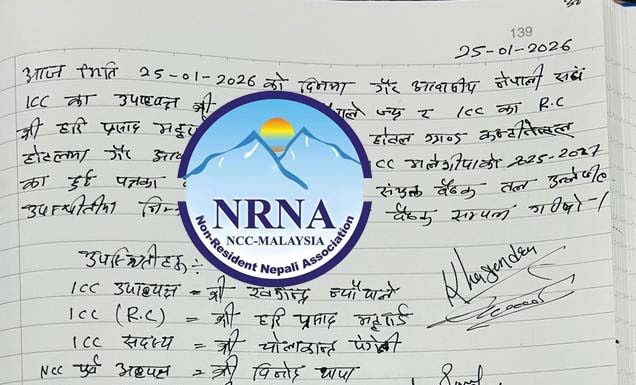 139
25-01-2026
आज मिति 25-01-2026 को दिनमा गैर आवासीय नेपाली संघ
ICC का उपाध्यक्ष श्री ज्यू र ICC का R.C
श्री हरि प्रसाद होटल ग्राण्ड कन्टिनेन्टल
होटलमा गैर CC मलेशियाको 2025-2027
का दुई पक्षका संयुक्त बैठक तल उल्लेखित
उपस्थितीमा बैठक सम्पन्न गरियो।
NRNA
NCC-MALAYSIA
Non-Resident Nepali Association
उपस्थितीहरु:
ICC उपाध्यक्ष = श्री खगेन्द्र न्यौपाने
ICC (R.C) = श्री हरि प्रसाद
ICC सदस्य = श्री
NCC पूर्व अध्यक्ष = श्री विनोद थापा
Khagendra